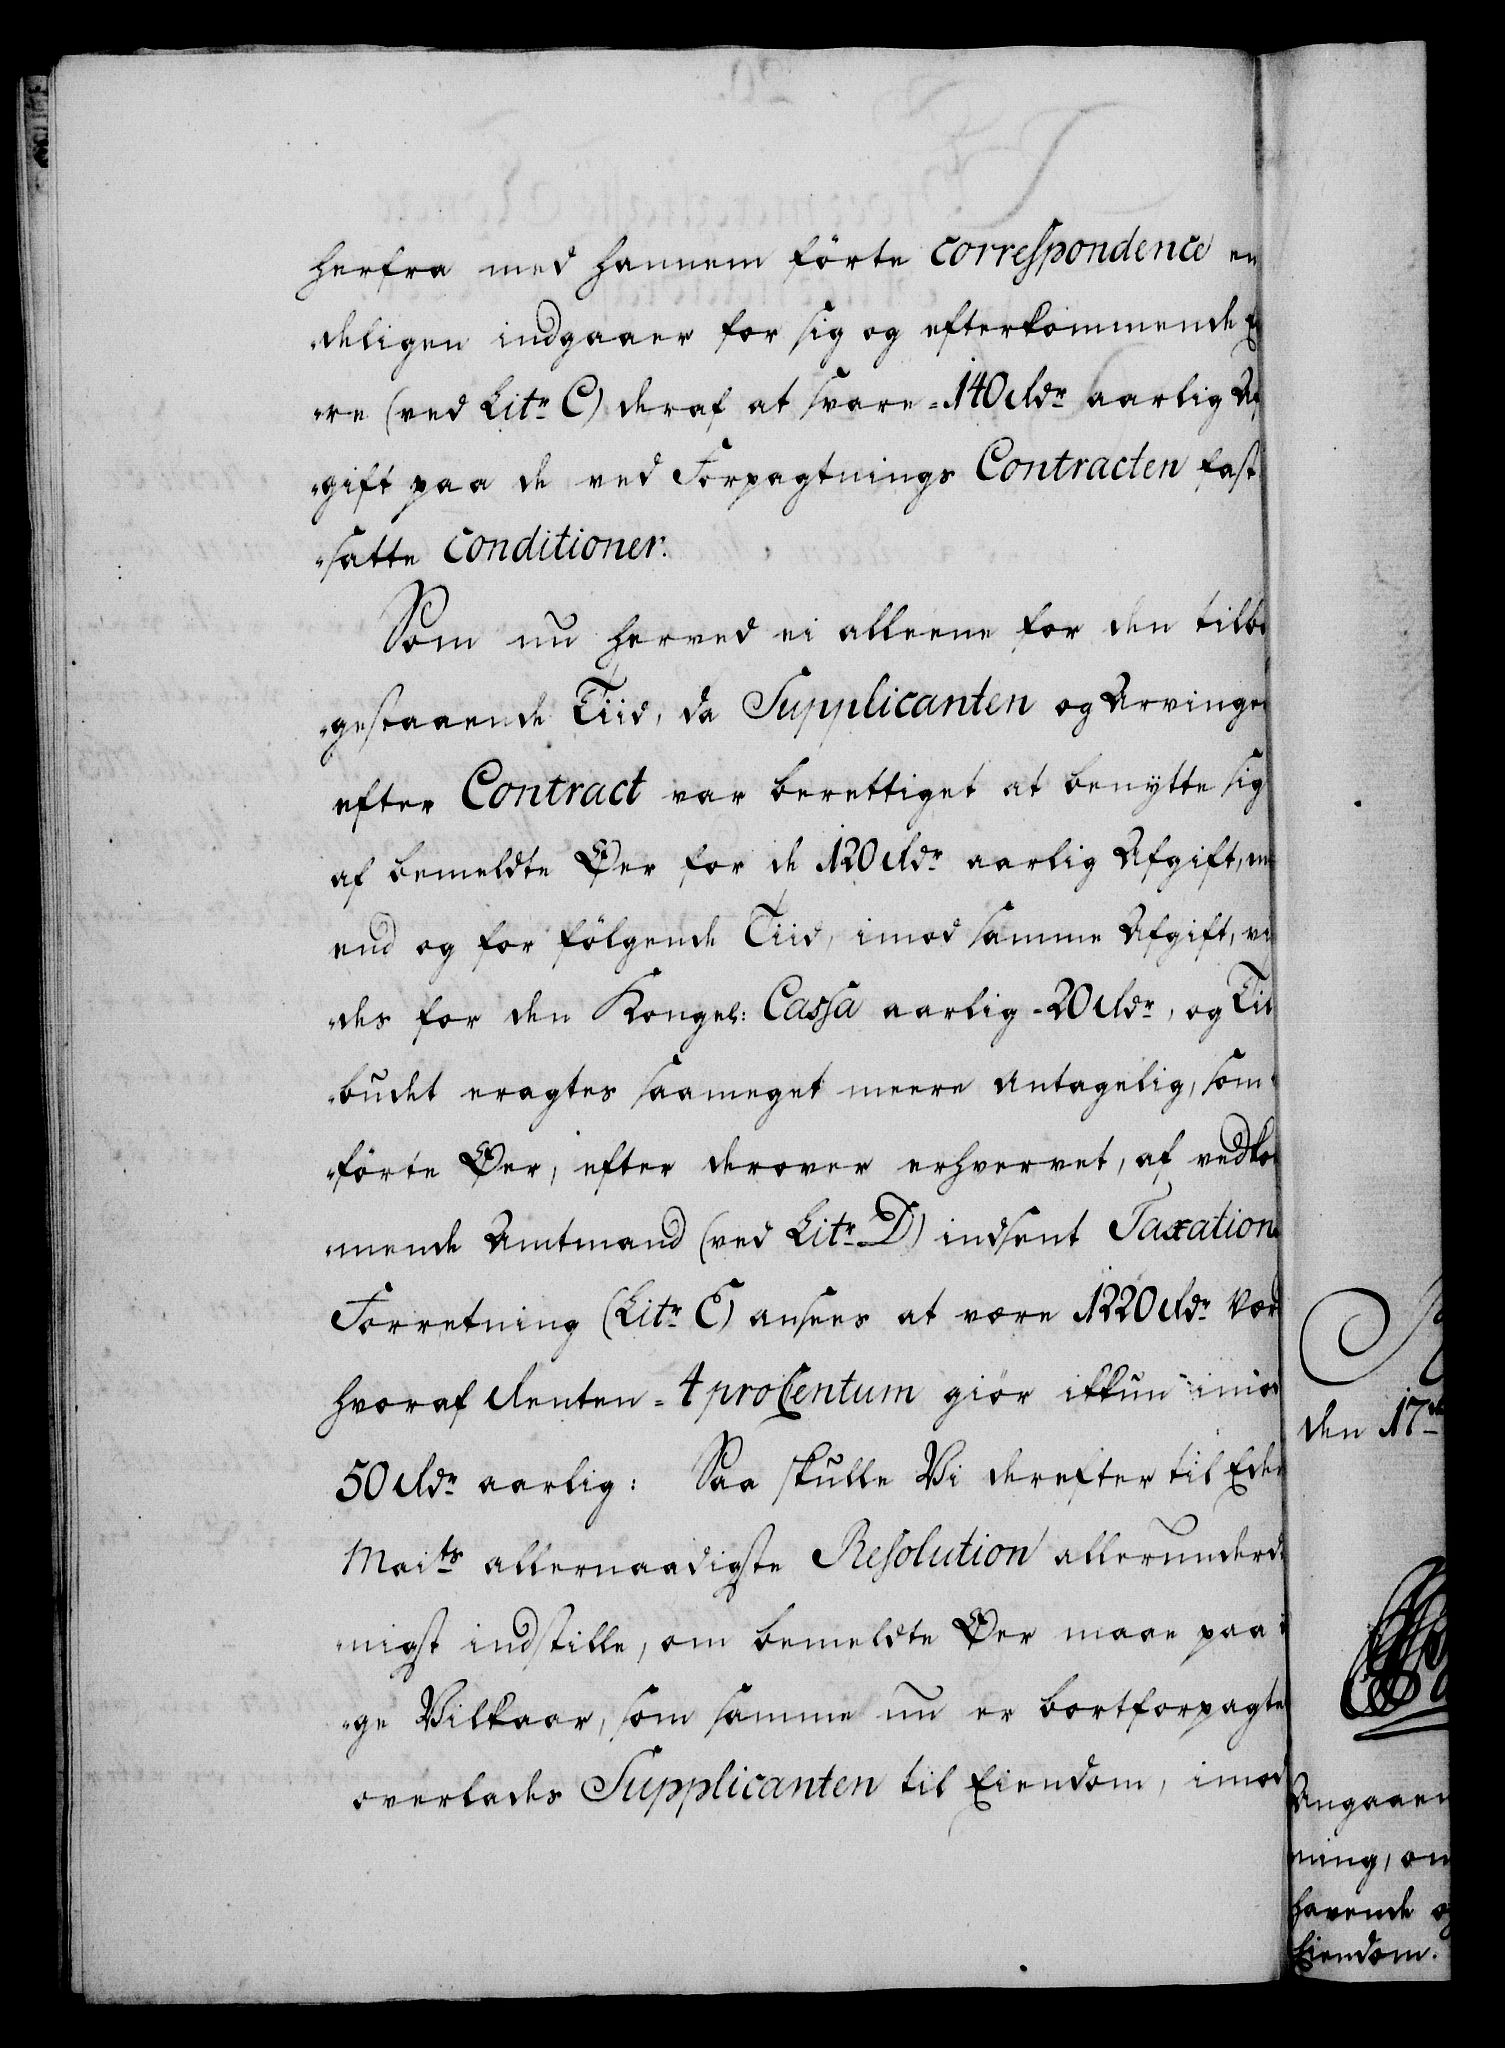 herfra med hannem förte Correspondence en
deligen indgaaer for sig og efterkommende E
re (ved Litr C) deraf at svare = 140 Rdr aarlig Af
gift paa de ved Forpagtnings Contracten fast
satte Conditioner.
Som nu herved ei alleene for den tilba
gestaaende Tiid, da Supplicanten og Arvinger
efter Contract var berettiget at benytte sig
af bemeldte Øer for de 120 Rdr aarlig Afgift, m
end og for fölgende Tiid, imod samme Afgift, vi
des for den Kongel: Cassa aarlig = 20 Rdr, og Til
budet eragtes saameget meere antagelig, som
förte Øer, efter derover erhvervet, af vedkom
mende Amtmand (ved Litr D) indsent Taxations
Forretning (Litr E) ansees at være 1220 Rdr Værd
hvoraf Renten = 4 proCentum giör ikkun imod
50 Rdr aarlig: Saa skulle Vi derefter til Eders
Maits allernaadigste Resolution allerunderda
nigst indstille, om bemeldte Øer maae paa
ge Vilkaar, som samme nu er bortforpagte
overlades Supplicanten til Eiendom, imod
den 17de
Angaaen
ning, om
havende og
Eiendom.